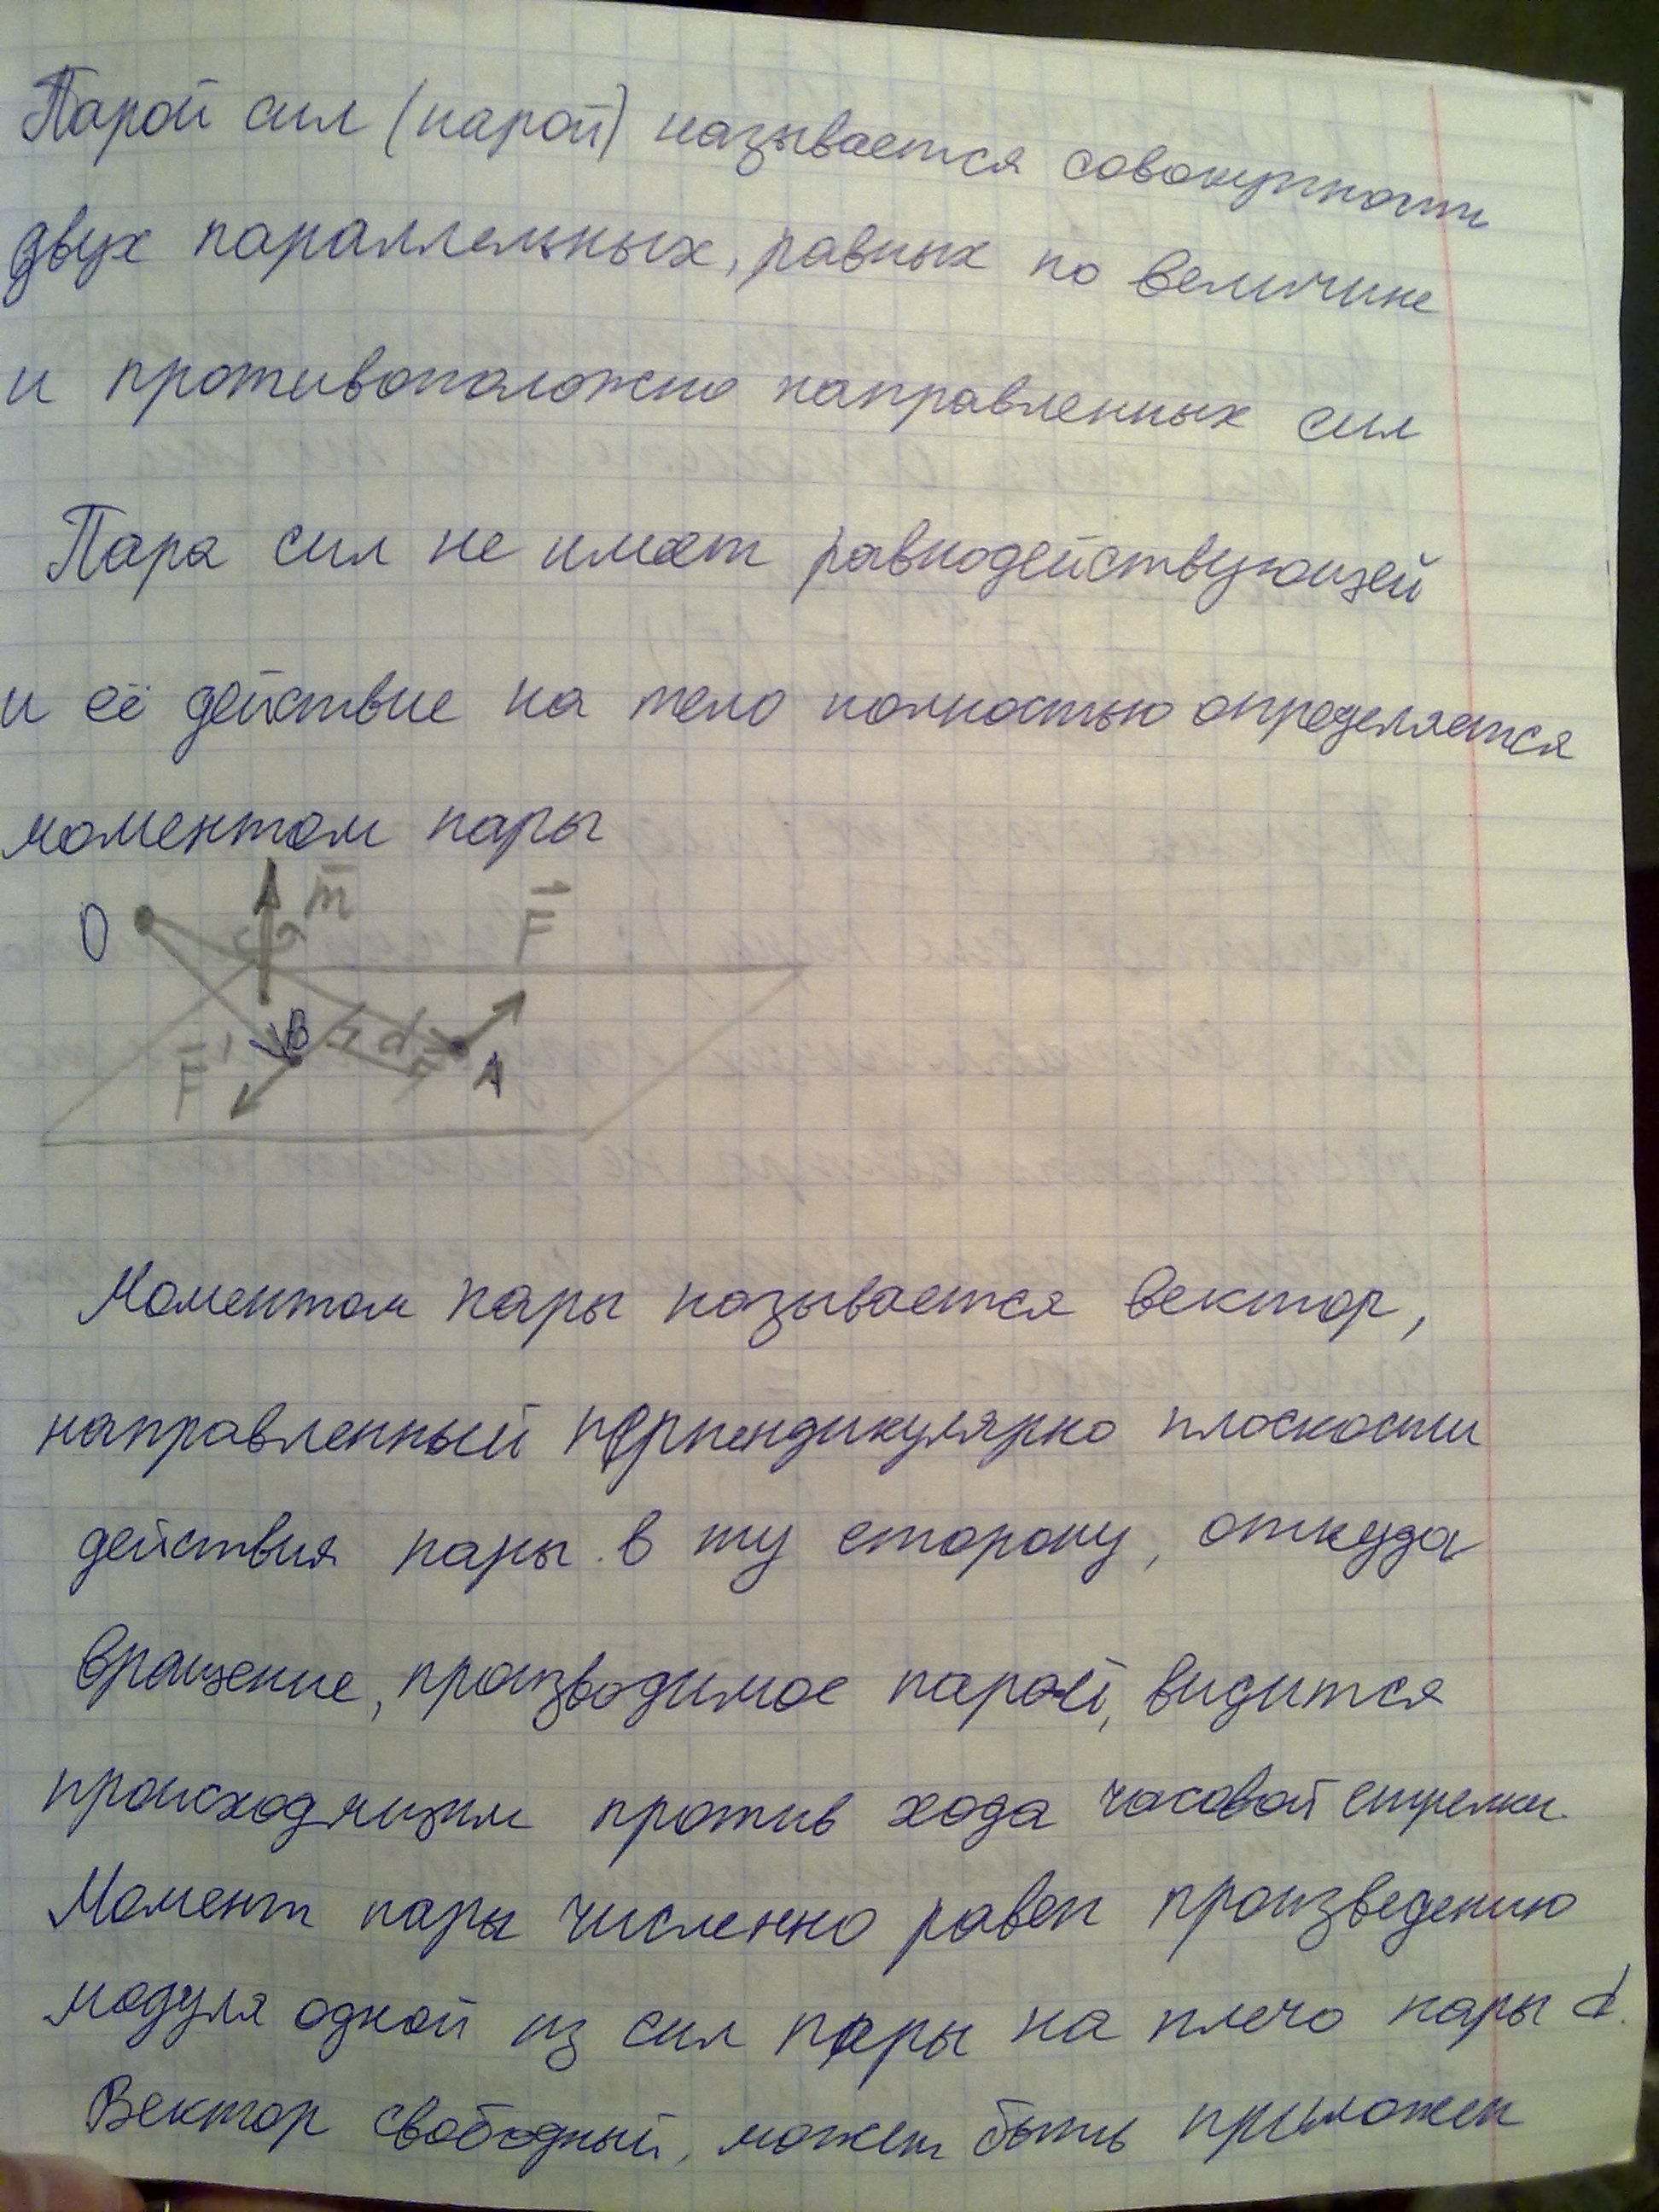 Парой сил (парой) называется совокупность
двух параллельных, равных по величине
и противоположно направленных сил
Пара сил не имеет равнодействующей
и её действие на тело полностью определяется
моментом пары
O m̅ F⃗
F̅' B d A
Моментом пары называется вектор,
направленный перпендикулярно плоскости
действия пары в ту сторону, откуда
вращение, производимое парой, видится
происходящим против хода часовой стрелки.
Момент пары численно равен произведению
модуля одной из сил пары на плечо пары d.
Вектор свободный, может быть приложен